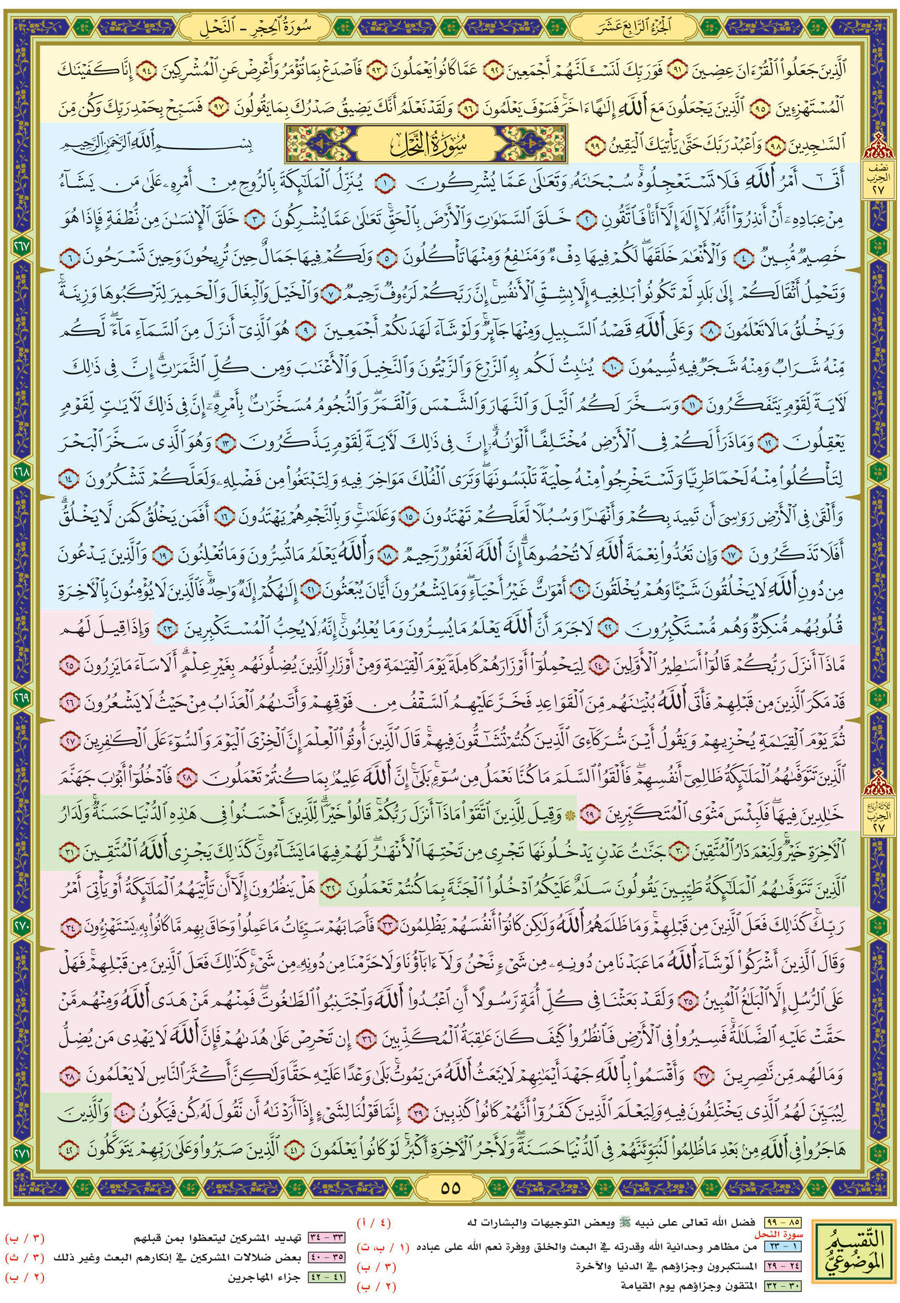 الجُزْءُ الرَّابِعَ عَشَرَ
سُورَةُ الحِجْرِ - النَّحْلِ
ٱلَّذِينَ جَعَلُوا۟ ٱلْقُرْءَانَ عِضِينَ ٩١ فَوَرَبِّكَ لَنَسْـَٔلَنَّهُمْ أَجْمَعِينَ ٩٢ عَمَّا كَانُوا۟ يَعْمَلُونَ ٩٣ فَٱصْدَعْ بِمَا تُؤْمَرُ وَأَعْرِضْ عَنِ ٱلْمُشْرِكِينَ ٩٤ إِنَّا كَفَيْنَـٰكَ
ٱلْمُسْتَهْزِءِينَ ٩٥ ٱلَّذِينَ يَجْعَلُونَ مَعَ ٱللَّهِ إِلَـٰهًا ءَاخَرَ ۚ فَسَوْفَ يَعْلَمُونَ ٩٦ وَلَقَدْ نَعْلَمُ أَنَّكَ يَضِيقُ صَدْرُكَ بِمَا يَقُولُونَ ٩٧ فَسَبِّحْ بِحَمْدِ رَبِّكَ وَكُن مِّنَ
ٱلسَّـٰجِدِينَ ٩٨ وَٱعْبُدْ رَبَّكَ حَتَّىٰ يَأْتِيَكَ ٱلْيَقِينُ ٩٩ سُورَةُ النَّحْلِ بِسْمِ ٱللَّهِ ٱلرَّحْمَـٰنِ ٱلرَّحِيمِ
أَتَىٰٓ أَمْرُ ٱللَّهِ فَلَا تَسْتَعْجِلُوهُ ۚ سُبْحَـٰنَهُۥ وَتَعَـٰلَىٰ عَمَّا يُشْرِكُونَ ١ يُنَزِّلُ ٱلْمَلَـٰٓئِكَةَ بِٱلرُّوحِ مِنْ أَمْرِهِۦ عَلَىٰ مَن يَشَآءُ
مِنْ عِبَادِهِۦٓ أَنْ أَنذِرُوٓا۟ أَنَّهُۥ لَآ إِلَـٰهَ إِلَّآ أَنَا۠ فَٱتَّقُونِ ٢ خَلَقَ ٱلسَّمَـٰوَٰتِ وَٱلْأَرْضَ بِٱلْحَقِّ ۚ تَعَـٰلَىٰ عَمَّا يُشْرِكُونَ ٣ خَلَقَ ٱلْإِنسَـٰنَ مِن نُّطْفَةٍ فَإِذَا هُوَ
خَصِيمٌ مُّبِينٌ ٤ وَٱلْأَنْعَـٰمَ خَلَقَهَا ۗ لَكُمْ فِيهَا دِفْءٌ وَمَنَـٰفِعُ وَمِنْهَا تَأْكُلُونَ ٥ وَلَكُمْ فِيهَا جَمَالٌ حِينَ تُرِيحُونَ وَحِينَ تَسْرَحُونَ ٦
وَتَحْمِلُ أَثْقَالَكُمْ إِلَىٰ بَلَدٍ لَّمْ تَكُونُوا۟ بَـٰلِغِيهِ إِلَّا بِشِقِّ ٱلْأَنفُسِ ۚ إِنَّ رَبَّكُمْ لَرَءُوفٌ رَّحِيمٌ ٧ وَٱلْخَيْلَ وَٱلْبِغَالَ وَٱلْحَمِيرَ لِتَرْكَبُوهَا وَزِينَةً ۚ
وَيَخْلُقُ مَا لَا تَعْلَمُونَ ٨ وَعَلَى ٱللَّهِ قَصْدُ ٱلسَّبِيلِ وَمِنْهَا جَآئِرٌ ۚ وَلَوْ شَآءَ لَهَدَىٰكُمْ أَجْمَعِينَ ٩ هُوَ ٱلَّذِىٓ أَنزَلَ مِنَ ٱلسَّمَآءِ مَآءً ۖ لَّكُم
مِّنْهُ شَرَابٌ وَمِنْهُ شَجَرٌ فِيهِ تُسِيمُونَ ١٠ يُنۢبِتُ لَكُم بِهِ ٱلزَّرْعَ وَٱلزَّيْتُونَ وَٱلنَّخِيلَ وَٱلْأَعْنَـٰبَ وَمِن كُلِّ ٱلثَّمَرَٰتِ ۗ إِنَّ فِى ذَٰلِكَ
لَـَٔايَةً لِّقَوْمٍ يَتَفَكَّرُونَ ١١ وَسَخَّرَ لَكُمُ ٱلَّيْلَ وَٱلنَّهَارَ وَٱلشَّمْسَ وَٱلْقَمَرَ ۖ وَٱلنُّجُومُ مُسَخَّرَٰتٌۢ بِأَمْرِهِۦٓ ۗ إِنَّ فِى ذَٰلِكَ لَـَٔايَـٰتٍ لِّقَوْمٍ
يَعْقِلُونَ ١٢ وَمَا ذَرَأَ لَكُمْ فِى ٱلْأَرْضِ مُخْتَلِفًا أَلْوَٰنُهُۥٓ ۗ إِنَّ فِى ذَٰلِكَ لَـَٔايَةً لِّقَوْمٍ يَذَّكَّرُونَ ١٣ وَهُوَ ٱلَّذِى سَخَّرَ ٱلْبَحْرَ
لِتَأْكُلُوا۟ مِنْهُ لَحْمًا طَرِيًّا وَتَسْتَخْرِجُوا۟ مِنْهُ حِلْيَةً تَلْبَسُونَهَا وَتَرَى ٱلْفُلْكَ مَوَاخِرَ فِيهِ وَلِتَبْتَغُوا۟ مِن فَضْلِهِۦ وَلَعَلَّكُمْ تَشْكُرُونَ ١٤
وَأَلْقَىٰ فِى ٱلْأَرْضِ رَوَٰسِىَ أَن تَمِيدَ بِكُمْ وَأَنْهَـٰرًا وَسُبُلًا لَّعَلَّكُمْ تَهْتَدُونَ ١٥ وَعَلَـٰمَـٰتٍ ۚ وَبِٱلنَّجْمِ هُمْ يَهْتَدُونَ ١٦ أَفَمَن يَخْلُقُ كَمَن لَّا يَخْلُقُ ۗ
أَفَلَا تَذَكَّرُونَ ١٧ وَإِن تَعُدُّوا۟ نِعْمَةَ ٱللَّهِ لَا تُحْصُوهَآ ۗ إِنَّ ٱللَّهَ لَغَفُورٌ رَّحِيمٌ ١٨ وَٱللَّهُ يَعْلَمُ مَا تُسِرُّونَ وَمَا تُعْلِنُونَ ١٩ وَٱلَّذِينَ يَدْعُونَ
مِن دُونِ ٱللَّهِ لَا يَخْلُقُونَ شَيْـًٔا وَهُمْ يُخْلَقُونَ ٢٠ أَمْوَٰتٌ غَيْرُ أَحْيَآءٍ ۖ وَمَا يَشْعُرُونَ أَيَّانَ يُبْعَثُونَ ٢١ إِلَـٰهُكُمْ إِلَـٰهٌ وَٰحِدٌ ۚ فَٱلَّذِينَ لَا يُؤْمِنُونَ بِٱلْـَٔاخِرَةِ
قُلُوبُهُم مُّنكِرَةٌ وَهُم مُّسْتَكْبِرُونَ ٢٢ لَا جَرَمَ أَنَّ ٱللَّهَ يَعْلَمُ مَا يُسِرُّونَ وَمَا يُعْلِنُونَ ۚ إِنَّهُۥ لَا يُحِبُّ ٱلْمُسْتَكْبِرِينَ ٢٣ وَإِذَا قِيلَ لَهُم
مَّاذَآ أَنزَلَ رَبُّكُمْ ۙ قَالُوٓا۟ أَسَـٰطِيرُ ٱلْأَوَّلِينَ ٢٤ لِيَحْمِلُوٓا۟ أَوْزَارَهُمْ كَامِلَةً يَوْمَ ٱلْقِيَـٰمَةِ ۙ وَمِنْ أَوْزَارِ ٱلَّذِينَ يُضِلُّونَهُم بِغَيْرِ عِلْمٍ ۗ أَلَا سَآءَ مَا يَزِرُونَ ٢٥
قَدْ مَكَرَ ٱلَّذِينَ مِن قَبْلِهِمْ فَأَتَى ٱللَّهُ بُنْيَـٰنَهُم مِّنَ ٱلْقَوَاعِدِ فَخَرَّ عَلَيْهِمُ ٱلسَّقْفُ مِن فَوْقِهِمْ وَأَتَىٰهُمُ ٱلْعَذَابُ مِنْ حَيْثُ لَا يَشْعُرُونَ ٢٦
ثُمَّ يَوْمَ ٱلْقِيَـٰمَةِ يُخْزِيهِمْ وَيَقُولُ أَيْنَ شُرَكَآءِىَ ٱلَّذِينَ كُنتُمْ تُشَـٰٓقُّونَ فِيهِمْ ۚ قَالَ ٱلَّذِينَ أُوتُوا۟ ٱلْعِلْمَ إِنَّ ٱلْخِزْىَ ٱلْيَوْمَ وَٱلسُّوٓءَ عَلَى ٱلْكَـٰفِرِينَ ٢٧
ٱلَّذِينَ تَتَوَفَّىٰهُمُ ٱلْمَلَـٰٓئِكَةُ ظَالِمِىٓ أَنفُسِهِمْ ۖ فَأَلْقَوُا۟ ٱلسَّلَمَ مَا كُنَّا نَعْمَلُ مِن سُوٓءٍۭ ۚ بَلَىٰٓ إِنَّ ٱللَّهَ عَلِيمٌۢ بِمَا كُنتُمْ تَعْمَلُونَ ٢٨ فَٱدْخُلُوٓا۟ أَبْوَٰبَ جَهَنَّمَ
خَـٰلِدِينَ فِيهَا ۖ فَلَبِئْسَ مَثْوَى ٱلْمُتَكَبِّرِينَ ٢٩ ۞ وَقِيلَ لِلَّذِينَ ٱتَّقَوْا۟ مَاذَآ أَنزَلَ رَبُّكُمْ ۚ قَالُوا۟ خَيْرًا ۗ لِّلَّذِينَ أَحْسَنُوا۟ فِى هَـٰذِهِ ٱلدُّنْيَا حَسَنَةٌ ۚ وَلَدَارُ
ٱلْـَٔاخِرَةِ خَيْرٌ ۚ وَلَنِعْمَ دَارُ ٱلْمُتَّقِينَ ٣٠ جَنَّـٰتُ عَدْنٍ يَدْخُلُونَهَا تَجْرِى مِن تَحْتِهَا ٱلْأَنْهَـٰرُ ۖ لَهُمْ فِيهَا مَا يَشَآءُونَ ۚ كَذَٰلِكَ يَجْزِى ٱللَّهُ ٱلْمُتَّقِينَ ٣١
ٱلَّذِينَ تَتَوَفَّىٰهُمُ ٱلْمَلَـٰٓئِكَةُ طَيِّبِينَ ۙ يَقُولُونَ سَلَـٰمٌ عَلَيْكُمُ ٱدْخُلُوا۟ ٱلْجَنَّةَ بِمَا كُنتُمْ تَعْمَلُونَ ٣٢ هَلْ يَنظُرُونَ إِلَّآ أَن تَأْتِيَهُمُ ٱلْمَلَـٰٓئِكَةُ أَوْ يَأْتِىَ أَمْرُ
رَبِّكَ ۚ كَذَٰلِكَ فَعَلَ ٱلَّذِينَ مِن قَبْلِهِمْ ۚ وَمَا ظَلَمَهُمُ ٱللَّهُ وَلَـٰكِن كَانُوٓا۟ أَنفُسَهُمْ يَظْلِمُونَ ٣٣ فَأَصَابَهُمْ سَيِّـَٔاتُ مَا عَمِلُوا۟ وَحَاقَ بِهِم مَّا كَانُوا۟ بِهِۦ يَسْتَهْزِءُونَ ٣٤
وَقَالَ ٱلَّذِينَ أَشْرَكُوا۟ لَوْ شَآءَ ٱللَّهُ مَا عَبَدْنَا مِن دُونِهِۦ مِن شَىْءٍ نَّحْنُ وَلَآ ءَابَآؤُنَا وَلَا حَرَّمْنَا مِن دُونِهِۦ مِن شَىْءٍ ۚ كَذَٰلِكَ فَعَلَ ٱلَّذِينَ مِن قَبْلِهِمْ ۚ فَهَلْ
عَلَى ٱلرُّسُلِ إِلَّا ٱلْبَلَـٰغُ ٱلْمُبِينُ ٣٥ وَلَقَدْ بَعَثْنَا فِى كُلِّ أُمَّةٍ رَّسُولًا أَنِ ٱعْبُدُوا۟ ٱللَّهَ وَٱجْتَنِبُوا۟ ٱلطَّـٰغُوتَ ۖ فَمِنْهُم مَّنْ هَدَى ٱللَّهُ وَمِنْهُم مَّنْ
حَقَّتْ عَلَيْهِ ٱلضَّلَـٰلَةُ ۚ فَسِيرُوا۟ فِى ٱلْأَرْضِ فَٱنظُرُوا۟ كَيْفَ كَانَ عَـٰقِبَةُ ٱلْمُكَذِّبِينَ ٣٦ إِن تَحْرِصْ عَلَىٰ هُدَىٰهُمْ فَإِنَّ ٱللَّهَ لَا يَهْدِى مَن يُضِلُّ ۖ
وَمَا لَهُم مِّن نَّـٰصِرِينَ ٣٧ وَأَقْسَمُوا۟ بِٱللَّهِ جَهْدَ أَيْمَـٰنِهِمْ ۙ لَا يَبْعَثُ ٱللَّهُ مَن يَمُوتُ ۚ بَلَىٰ وَعْدًا عَلَيْهِ حَقًّا وَلَـٰكِنَّ أَكْثَرَ ٱلنَّاسِ لَا يَعْلَمُونَ ٣٨
لِيُبَيِّنَ لَهُمُ ٱلَّذِى يَخْتَلِفُونَ فِيهِ وَلِيَعْلَمَ ٱلَّذِينَ كَفَرُوٓا۟ أَنَّهُمْ كَانُوا۟ كَـٰذِبِينَ ٣٩ إِنَّمَا قَوْلُنَا لِشَىْءٍ إِذَآ أَرَدْنَـٰهُ أَن نَّقُولَ لَهُۥ كُن فَيَكُونُ ٤٠ وَٱلَّذِينَ
هَاجَرُوا۟ فِى ٱللَّهِ مِنۢ بَعْدِ مَا ظُلِمُوا۟ لَنُبَوِّئَنَّهُمْ فِى ٱلدُّنْيَا حَسَنَةً ۖ وَلَأَجْرُ ٱلْـَٔاخِرَةِ أَكْبَرُ ۚ لَوْ كَانُوا۟ يَعْلَمُونَ ٤١ ٱلَّذِينَ صَبَرُوا۟ وَعَلَىٰ رَبِّهِمْ يَتَوَكَّلُونَ ٤٢
نصف
الحزب
٢٧
ثلاثة أرباع
الحزب
٢٧
٢٦٧
٢٦٨
٢٦٩
٢٧٠
٢٧١
٥٥
التَّقسِيمُ
المَوضُوعِيُّ
٨٥ - ٩٩ فضل الله تعالى على نبيه ﷺ وبعض التوجيهات والبشارات له (٤ / أ)
سورة النحل
١ - ٢٣ من مظاهر وحدانية الله وقدرته في البعث والخلق ووفرة نعم الله على عباده (١ / ب، ت)
٢٤ - ٢٩ المستكبرون وجزاؤهم في الدنيا والآخرة (٣ / ب)
٣٠ - ٣٢ المتقون وجزاؤهم يوم القيامة (٢ / ب)
٣٣ - ٣٤ تهديد المشركين ليتعظوا بمن قبلهم (٣ / ب)
٣٥ - ٤٠ بعض ضلالات المشركين في إنكارهم البعث وغير ذلك (٣ / ث)
٤١ - ٤٢ جزاء المهاجرين (٢ / ب)